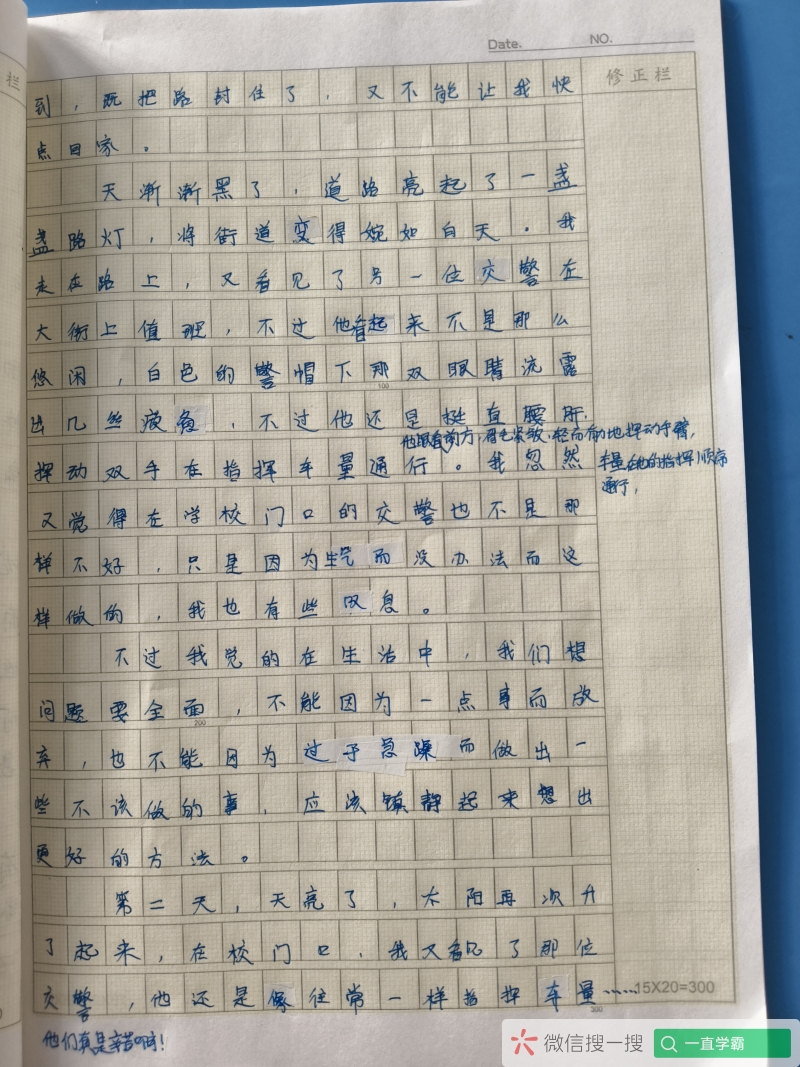 Date. NO.
修正栏
栏
到，既把路封住了，又不能让我快
点回家。
天渐渐黑了，道路亮起了一盏
盏路灯，将街道变得婉如白天。我
走在路上，又看见了另一位交警在
大街上值班，不过他看起来不是那么
悠闲，白色的警帽下那双眼睛流露
出几丝疲惫，不过他还是挺直腰杆，
他眼看前方，眉毛紧皱，轻而有力地挥动手臂，
挥动双手在指挥车量通行。我忽然
车量在他的指挥顺序
通行，
又觉得在学校门口的交警也不是那
样不好，只是因为生气而没办法而这
样做的，我也有些叹息。
不过我觉的在生活中，我们想
问题要全面，不能因为一点事而放
弃，也不能因为过于急躁而做出一
些不该做的事，应该镇静起来想出
更好的方法。
第二天，天亮了，太阳再次升
了起来，在校门口，我又看见了那位
交警，他还是像往常一样指挥车量……
15X20=300
他们真是辛苦啊！
100
200
300
微信搜一搜
一直学霸